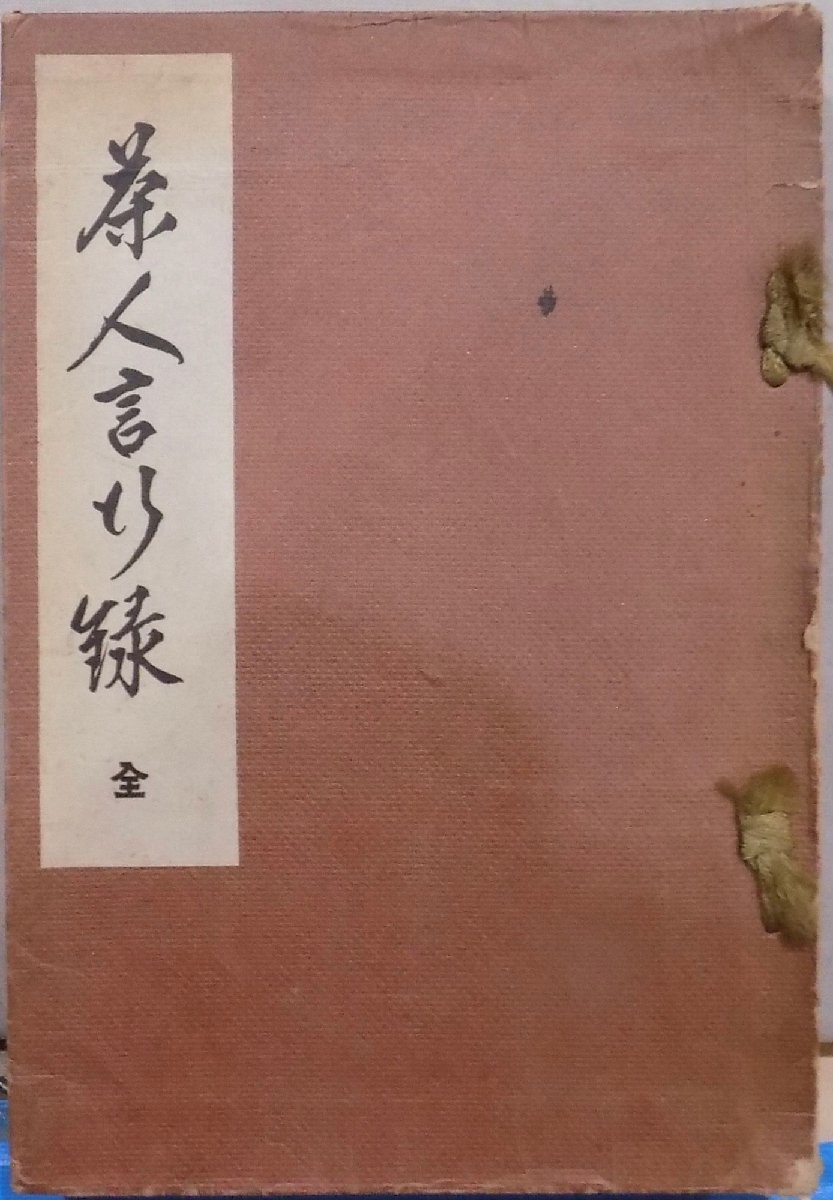 茶人言行録
全